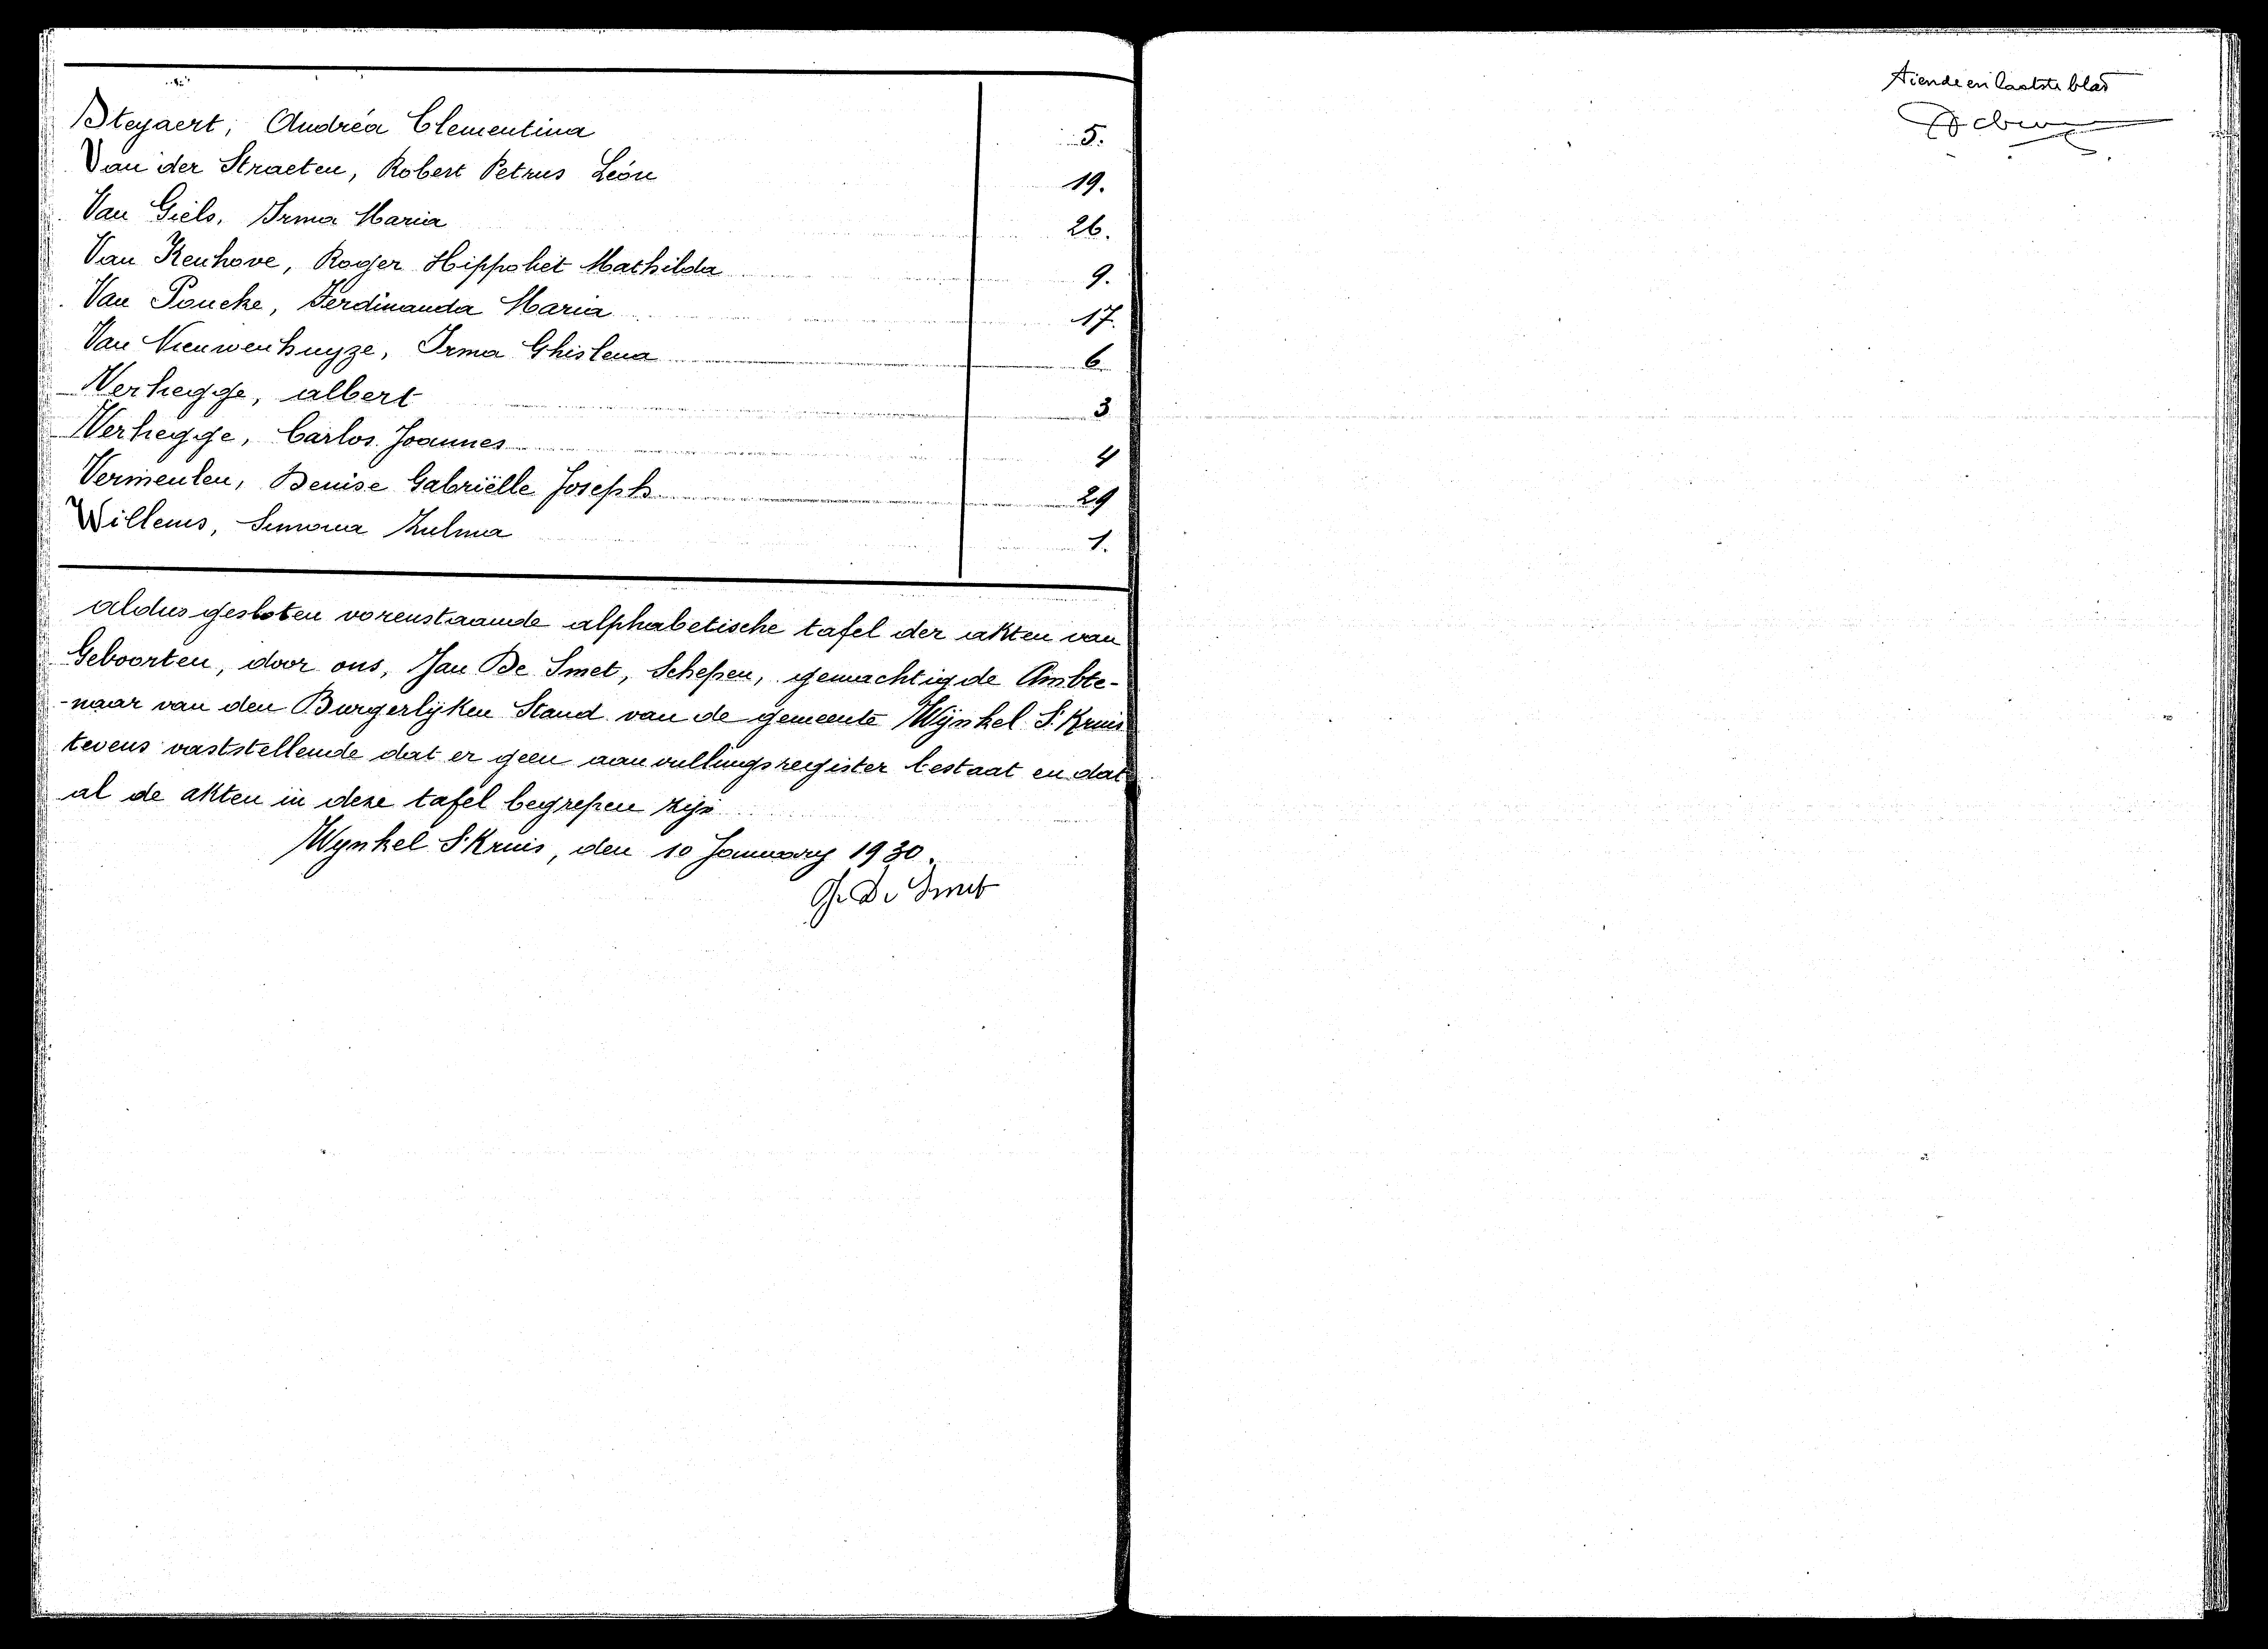 Steyaert, Andréa Clementina 5.
Van der Straeten, Robert Petrus Léon 19.
Van Giels, Irma Maria 26.
Van Kenhove, Roger Hippoliet Mathilda 9.
Van Poucke, Ferdinanda Maria 17.
Van Nieuwenhuyze, Irma Ghislena 6
Verhegge, albert 3
Verhegge, Carlos Joannes 4
Vermeulen, Denise Gabriëlle Joseph 29
Willems, Simona Zulma 1.
aldus gesloten vorenstaande alphabetische tafel der akten van
Geboorten, door ons, Jan De Smet, Schepen, gemachtigde Ambte-
-naar van den Burgerlyken Stand van de gemeente Wynkel St Kruis
tevens vaststellende dat er geen aanvullingsregister bestaat en dat
al de akten in deze tafel begrepen zijn
Wynkel St Kruis, den 10 January 1930.
De Smet
tiende en laatste blad